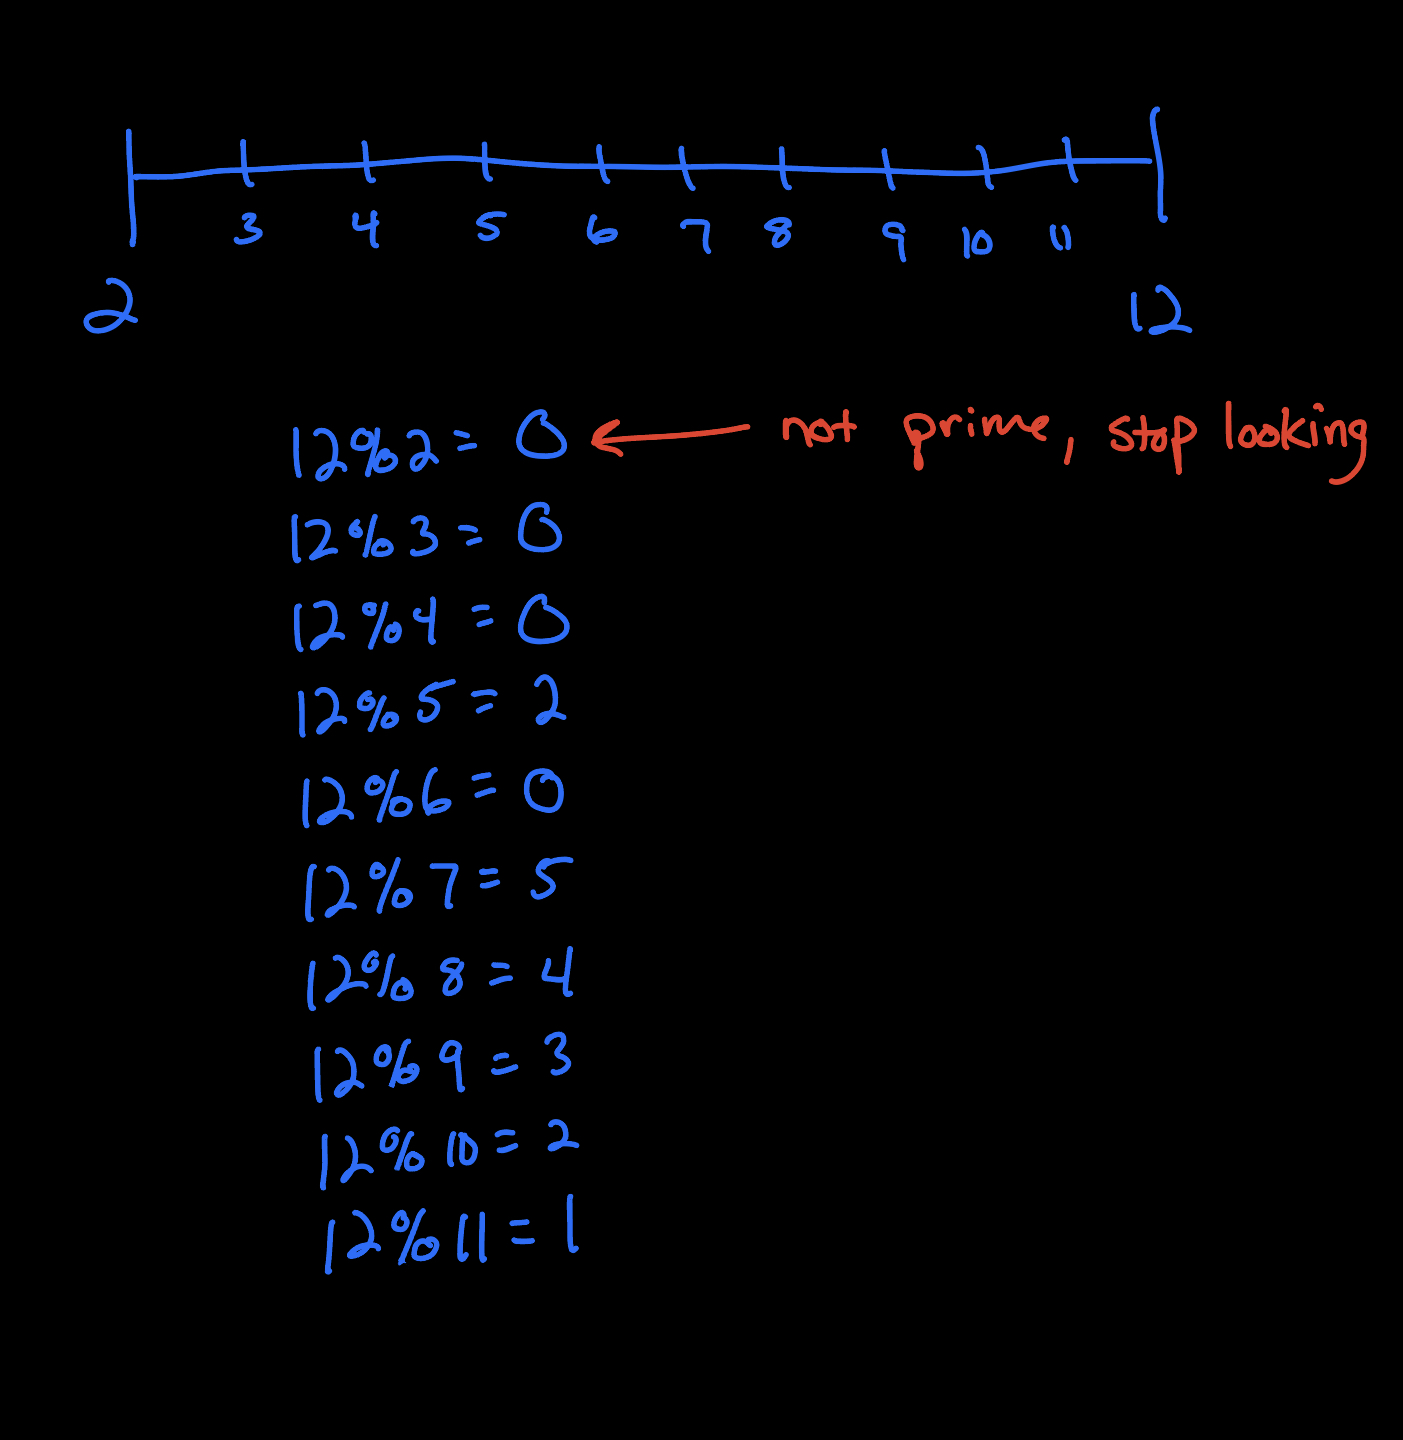 3 4 5 6 7 8 9 10 11
2 12
12%2=0 not prime, stop looking
12%3=0
12%4=0
12%5=2
12%6=0
12%7=5
12%8=4
12%9=3
12%10=2
12%11=1